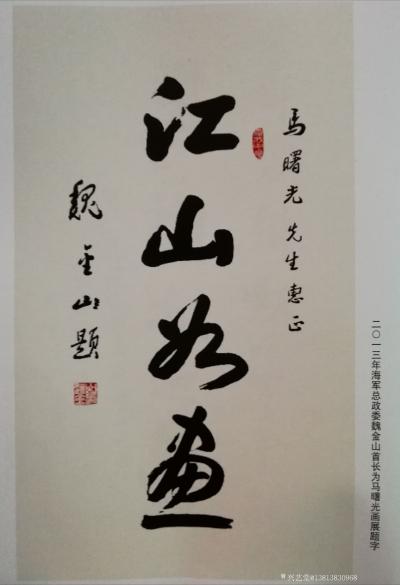 马曙光先生惠正
江山如画
魏金山题
二〇一三年海军总政委魏金山首长为马曙光画展题字
兴艺堂@13813830968